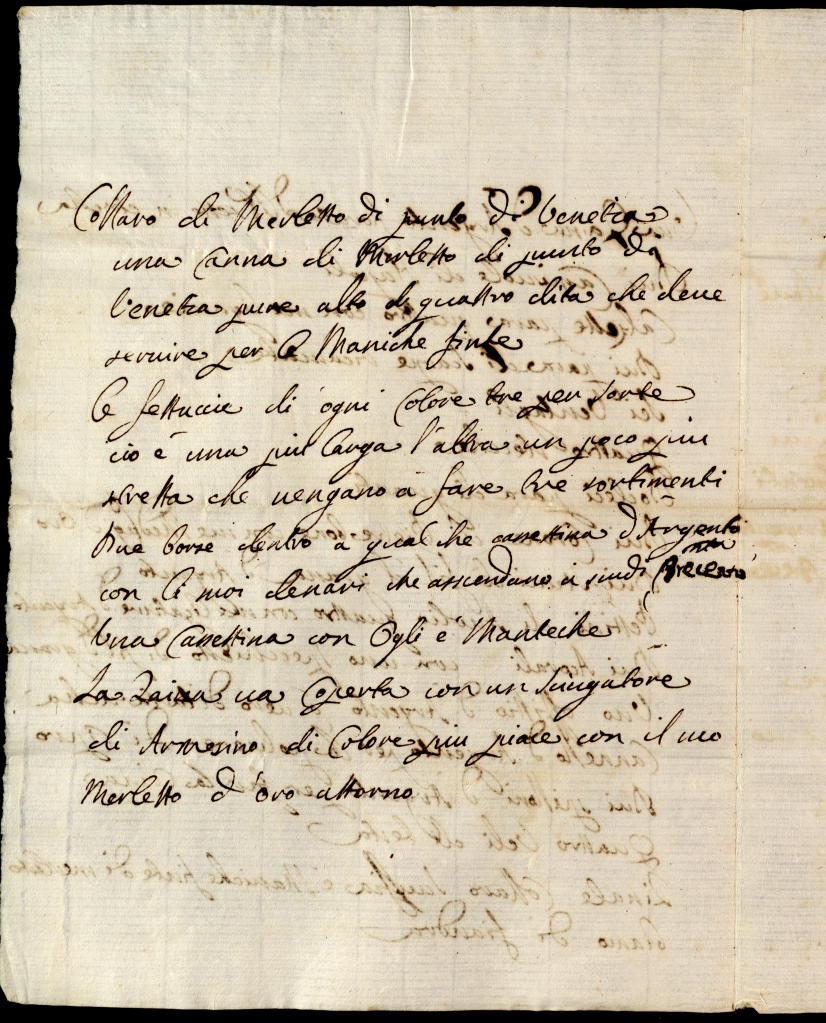 Collaro di Merletto di punto di Venetia
una Canna di Merletto di punto di
Venetia pure alto di quattro dita che deve
servire per le Maniche finte
le fettuccie di ogni Colore tre per sorte
cio è una piu larga l'altra un poco piu
stretta che vengano à fare tre sortimenti
Due borse dentro a qualche cassettina d'Argento
con li suoi denari che ascendano à scudi trecento
Una Cassettina con Ogli e Manteche
La Zaina va coperta con un sciugatore
di Armesino di Colore piu piace con il suo
Merletto d'oro attorno